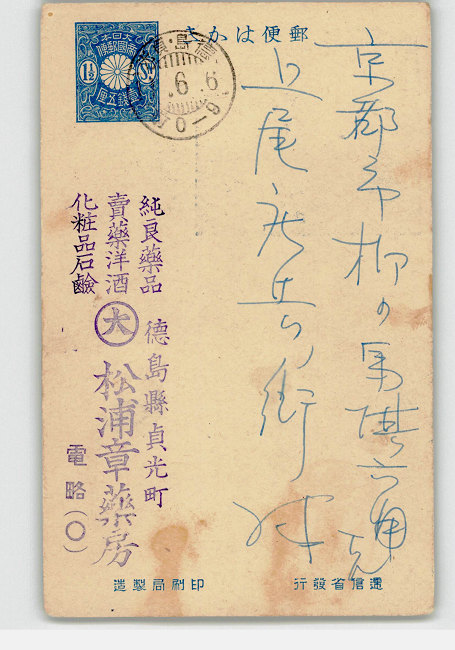 郵便はかき
大日本
帝國郵便
壹錢五厘
1½
Sn
德島・貞光
6.6.6
0-9
京都市柳の馬場六角
上尾庄兵衛
純良藥品
賣藥洋酒
化粧品石鹸
大
德島縣貞光町
松浦章藥房
電略(〇)
遞信省發行
印刷局製造